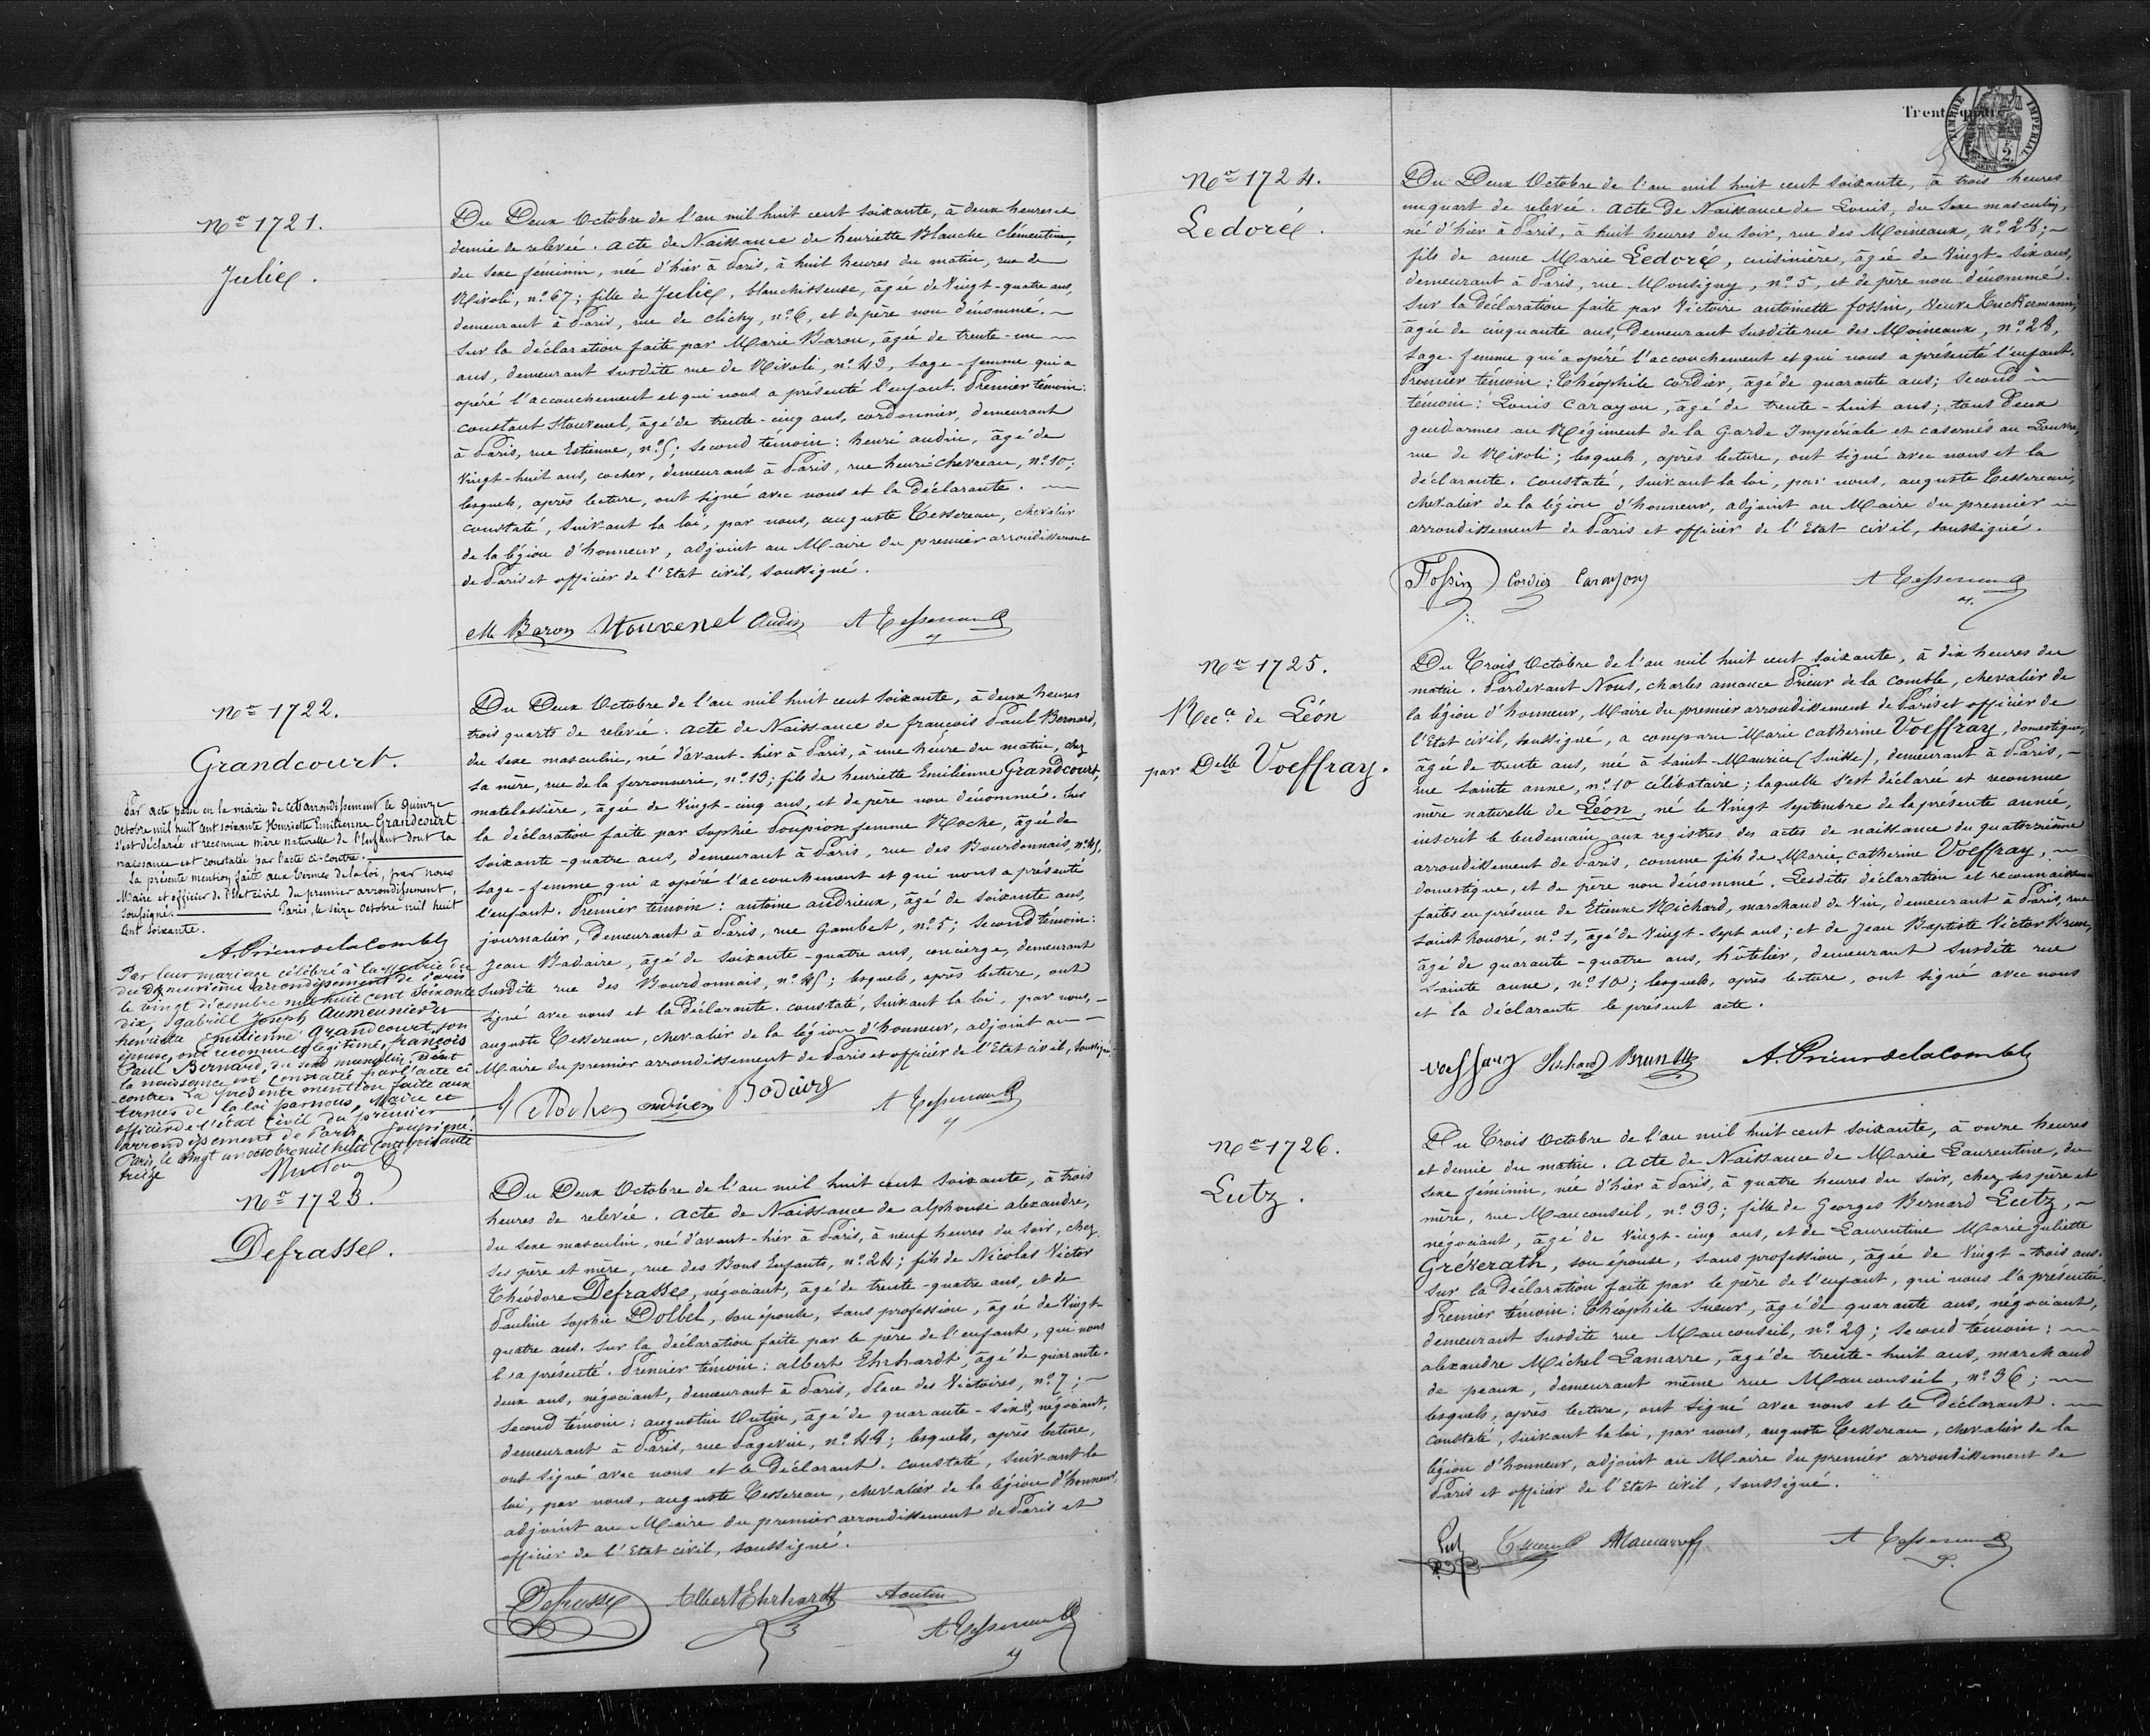 Nº 1721.
Julie.
Du Deux Octobre de l'an mil huit cent soixante, à deux heures et
demie de relevée. Acte de Naissance de henriette Blanche Clémentine,
du sexe féminin, née d'hier à Paris, à huit heures du matin, rue de
Rivoli, nº 67; fille de Julie, blanchisseuse, âgée de Vingt-quatre ans,
demeurant à Paris, rue de Clichy, nº 6, et de père non dénommé.
Sur la déclaration faite par Marie Baron, âgée de trente-un
ans, demeurant susdite rue de Rivoli, nº 43, sage-femme qui a
opéré l'accouchement et qui nous a présenté l'enfant. Premier témoin:
constant Stouvenel, âgé de trente-cinq ans, cordonnier, demeurant
à Paris, rue Estienne, nº 5; second témoin: henri audin, âgé de
Vingt-huit ans, cocher, demeurant à Paris, rue henri chevreau, nº 10;
lesquels, après lecture, ont signé avec nous et la déclarante.
constaté, suivant la loi, par nous, auguste Tessereau, chevalier
de la légion d'honneur, adjoint au Maire du premier arrondissement
de Paris et officier de l'Etat civil, soussigné.
M Baron Stouvenel Audin A Tessereau
Nº 1722.
Grandcourt.
Par acte passé en la mairie de cet arrondissement le quinze
octobre mil huit cent soixante Henriette Emilienne Grandcourt
s'est déclarée et reconnue mère naturelle de l'enfant dont la
naissance est constatée par l'acte ci-contre.
La présente mention faite aux termes de la loi, par nous
Maire et officier de l'Etat civil du premier arrondissement,
soussigné. Paris, le seize octobre mil huit
cent soixante.
A. Prieur de la Comble
Par leur mariage célébré à la mairie du
du neuvième arrondissement de Paris
le vingt décembre mil huit cent soixante
dix, Gabriel Joseph Aumeunier et
henriette Emilienne Grandcourt, son
épouse, ont reconnu et légitimé, françois
Paul Bernard, du sexe masculin, dont
la naissance est constatée par l'acte ci
contre. La présente mention faite aux
termes de la loi par nous, Maire et
officier de l'état civil du premier
arrondissement de Paris, soussigné.
Paris, le vingt un octobre mil huit cent soixante
treize
Du Deux Octobre de l'an mil huit cent soixante, à deux heures
trois quarts de relevée. Acte de Naissance de françois Paul Bernard,
du sexe masculin, né d'avant-hier à Paris, à une heure du matin, chez
sa mère, rue de la ferronnerie, nº 13; fils de henriette Emilienne Grandcourt,
matelassière, âgée de Vingt-cinq ans, et de père non dénommé. Sur
la déclaration faite par Sophie Poupion femme Roche, âgée de
soixante-quatre ans, demeurant à Paris, rue des Bourdonnais, nº 45,
sage-femme qui a opéré l'accouchement et qui nous a présenté
l'enfant. Premier témoin: antoine andrieux, âgé de soixante ans,
journalier, demeurant à Paris, rue Gambet, nº 5; second témoin:
Jean Badaire, âgé de soixante-quatre ans, concierge, demeurant
susdite rue des Bourdonnais, nº 45; lesquels, après lecture, ont
signé avec nous et la déclarante. constaté, suivant la loi, par nous,
auguste Tessereau, chevalier de la légion d'honneur, adjoint au
Maire du premier arrondissement de Paris et officier de l'Etat civil, soussigné.
A Tessereau
Nº 1723.
Defrasse.
Du Deux Octobre de l'an mil huit cent soixante, à trois
heures de relevée. Acte de Naissance de alphonse alexandre,
du sexe masculin, né d'avant-hier à Paris, à neuf heures du soir, chez
ses père et mère, rue des Bons Enfants, nº 24; fils de Nicolas Victor
Théodore Defrasse, négociant, âgé de trente-quatre ans, et de
Pauline Sophie Dolbel, son épouse, sans profession, âgée de Vingt-
quatre ans. Sur la déclaration faite par le père de l'enfant, qui nous
l'a présenté. Premier témoin: albert Ehrhardt, âgé de quarante-
deux ans, négociant, demeurant à Paris, place des Victoires, nº 7;
second témoin: augustin Outin, âgé de quarante-six, négociant,
demeurant à Paris, rue Pagevin, nº 44; lesquels, après lecture,
ont signé avec nous et le déclarant. constaté, suivant la
loi, par nous, auguste Tessereau, chevalier de la légion d'honneur,
adjoint au Maire du premier arrondissement de Paris et
officier de l'Etat civil, soussigné.
Defrasse Albert Ehrhardt Aoutin
A Tessereau
TIMBRE IMPERIAL
Nº 1724.
Ledoré.
Du Deux Octobre de l'an mil huit cent soixante, à trois heures
un quart de relevée. Acte de Naissance de Louis, du sexe masculin,
né d'hier à Paris, à huit heures du soir, rue des Moineaux, nº 28;
fils de anne Marie Ledoré, cuisinière, âgée de Vingt-six ans,
demeurant à Paris, rue Monsigny, nº 5, et de père non dénommé.
Sur la déclaration faite par Victoire antoinette fossin, veuve Tuckermann,
âgée de cinquante ans, demeurant susdite rue des Moineaux, nº 28,
sage-femme qui a opéré l'accouchement et qui nous a présenté l'enfant.
Premier témoin: Théophile cordier, âgé de quarante ans; second
témoin: Louis Carayon, âgé de trente-huit ans; tous deux
gendarmes au Régiment de la Garde Impériale et casernés au Louvre,
rue de Rivoli; lesquels, après lecture, ont signé avec nous et la
déclarante. constaté, suivant la loi, par nous, auguste Tessereau,
chevalier de la légion d'honneur, adjoint au Maire du premier
arrondissement de Paris et officier de l'Etat civil, soussigné.
Fossin Cordier Carayon A Tessereau
Nº 1725.
Recce. de Léon
par Delle Voeffray.
Du Trois Octobre de l'an mil huit cent soixante, à dix heures du
matin. Pardevant Nous, charles amance Prieur de la comble, chevalier de
la légion d'honneur, Maire du premier arrondissement de Paris et officier de
l'Etat civil, soussigné, a comparu Marie Catherine Voeffray, domestique,
âgée de trente ans, née à Saint-Maurice (Suisse), demeurant à Paris,
rue Sainte anne, nº 10 célibataire; laquelle s'est déclarée et reconnue
mère naturelle de Léon, né le Vingt Septembre de la présente année,
inscrit le lendemain aux registres des actes de naissance du quatorzième
arrondissement de Paris, comme fils de Marie Catherine Voeffray,
domestique, et de père non dénommé. Lesdites déclaration et reconnaissance
faites en présence de Etienne Richard, marchand de Vin, demeurant à Paris, rue
Saint honoré, nº 1, âgé de Vingt-sept ans; et de Jean Baptiste Victor Brun,
âgé de quarante-quatre ans, hôtelier, demeurant susdite rue
Sainte anne, nº 10; lesquels, après lecture, ont signé avec nous
et la déclarante le présent acte.
Voeffray Richard Brun A. Prieur de la Comble
Nº 1726.
Lutz.
Du Trois Octobre de l'an mil huit cent soixante, à onze heures
et demie du matin. Acte de Naissance de Marie Laurentine, du
sexe féminin, née d'hier à Paris, à quatre heures du soir, chez ses père et
mère, rue Mauconseil, nº 33; fille de Georges Bernard Lutz,
négociant, âgé de Vingt-cinq ans, et de Laurentine Marie Juliette
Grékerath, son épouse, sans profession, âgée de Vingt-trois ans.
Sur la déclaration faite par le père de l'enfant, qui nous l'a présentée.
Premier témoin: Théophile Sueur, âgé de quarante ans, négociant,
demeurant susdite rue Mauconseil, nº 29; second témoin:
alexandre Michel Lamarre, âgé de trente-huit ans, marchand
de peaux, demeurant même rue Mauconseil, nº 36;
lesquels, après lecture, ont signé avec nous et le déclarant.
constaté, suivant la loi, par nous, auguste Tessereau, chevalier de la
légion d'honneur, adjoint au Maire du premier arrondissement de
Paris et officier de l'Etat civil, soussigné.
Lutz T Sueur A Tessereau